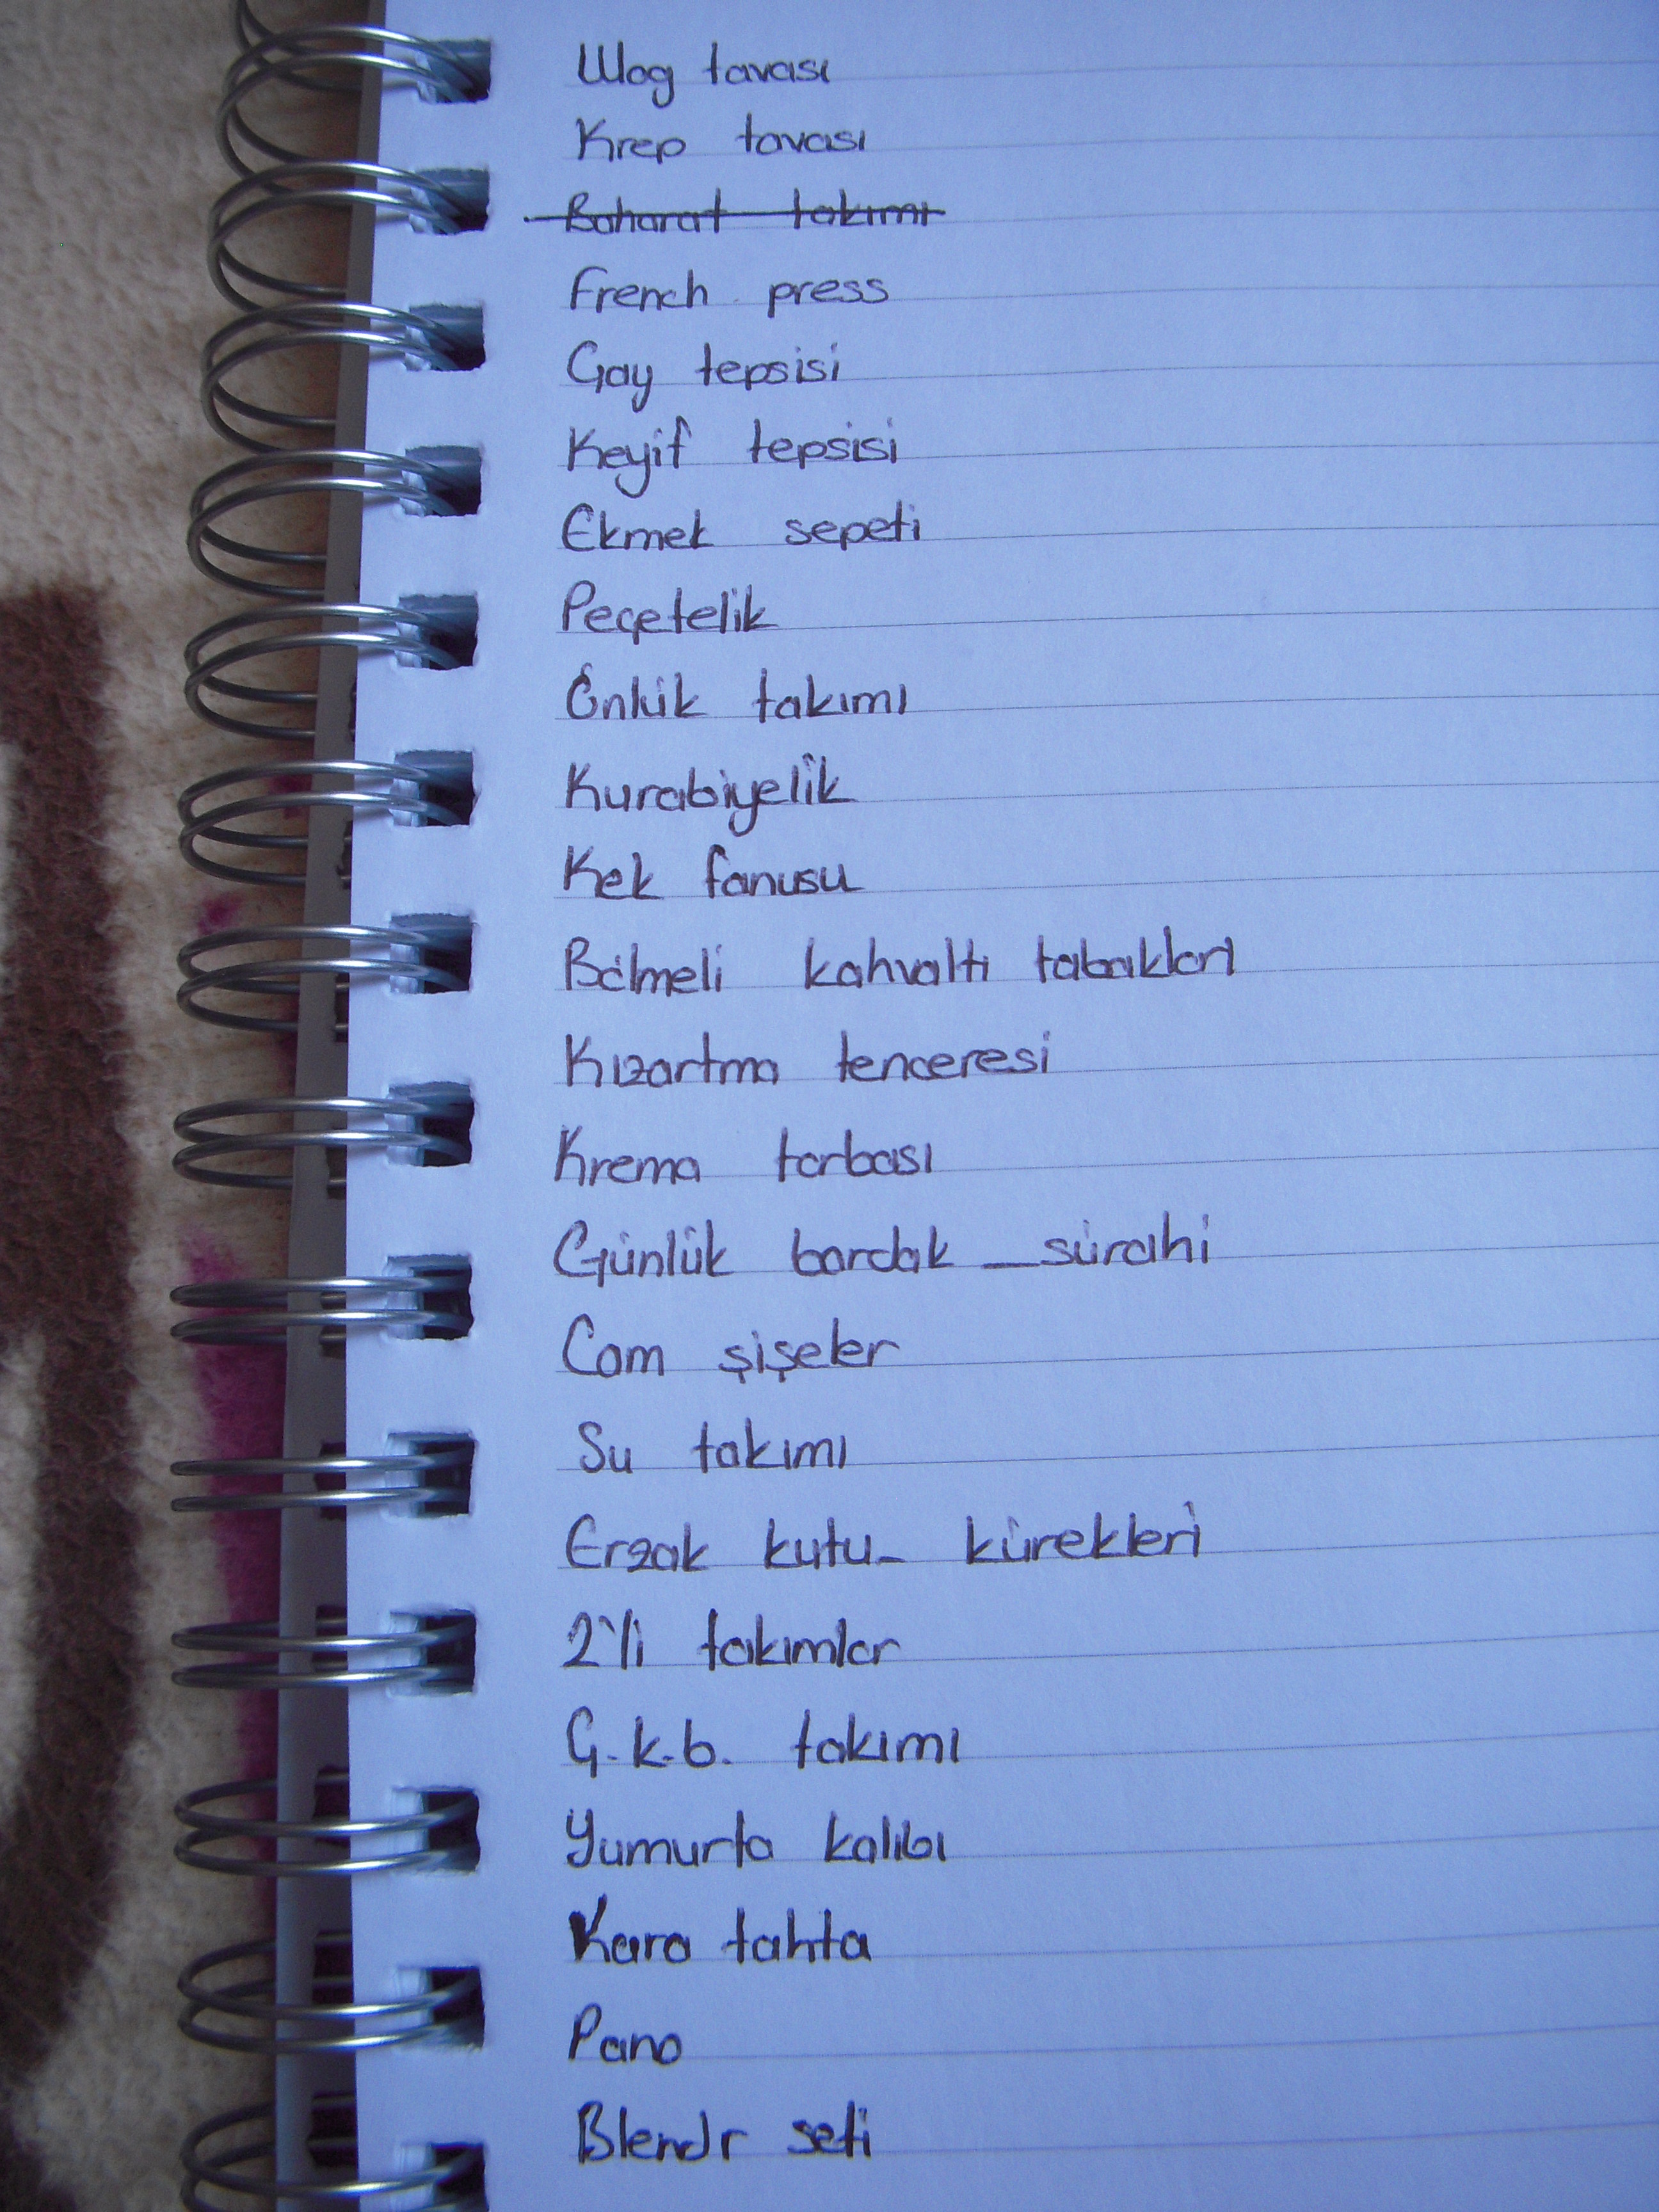 Wog tavası
Krep tavası
Baharat takımı
French press
Çay tepsisi
Keyif tepsisi
Ekmek sepeti
Peçetelik
Önlük takımı
Kurabiyelik
Kek fanusu
Bölmeli kahvaltı tabakları
Kızartma tenceresi
Krema torbası
Günlük bardak _ sürahi
Cam şişeler
Su takımı
Erzak kutu_ kürekleri
2'li takımlar
Ç.k.b. takımı
Yumurta kalıbı
Kara tahta
Pano
Blendr seti